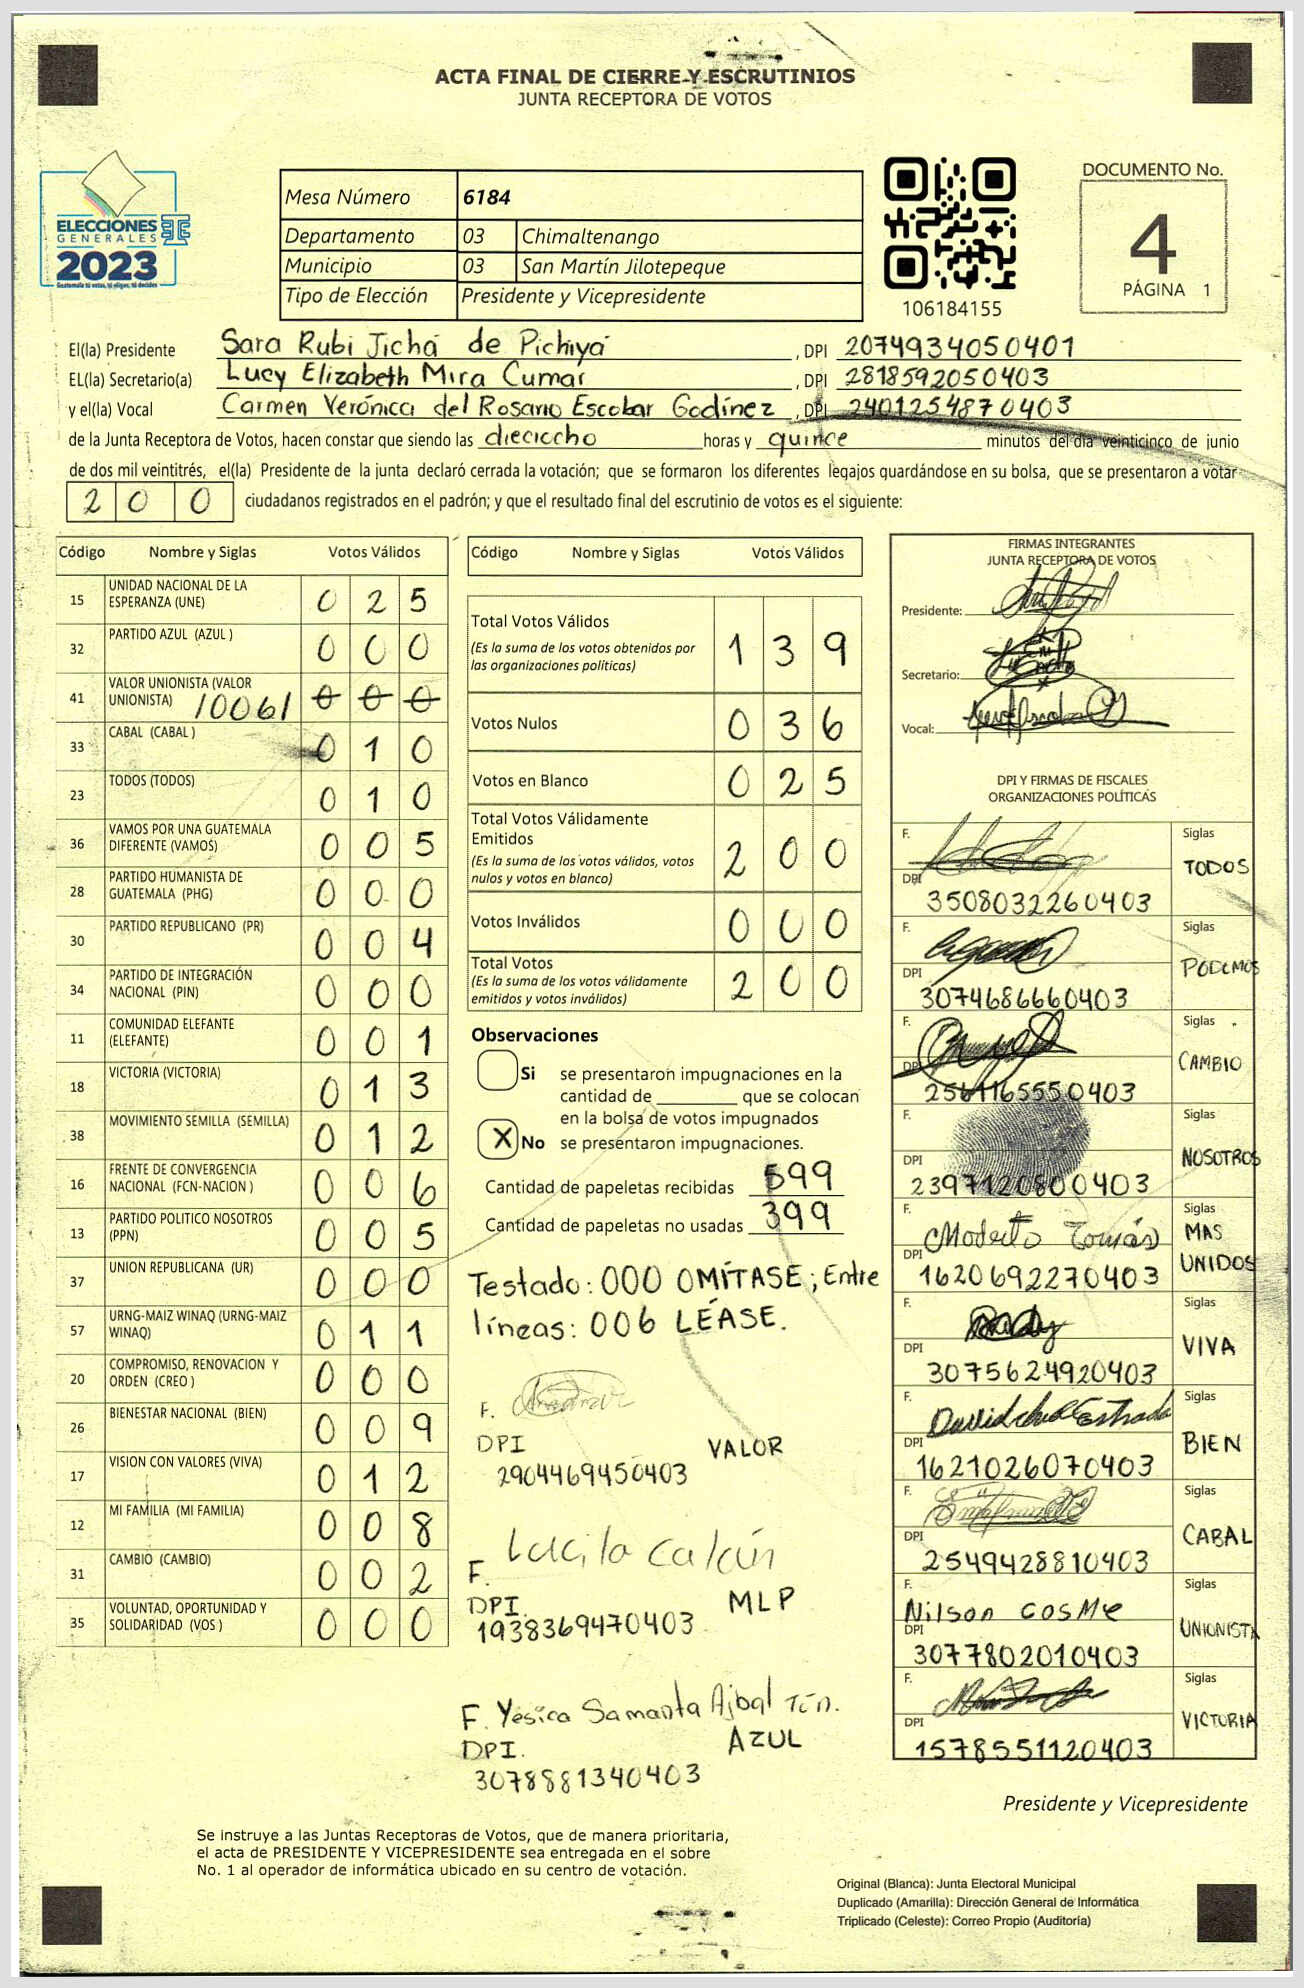 ACTA FINAL DE CIERRE Y ESCRUTINIOS
JUNTA RECEPTORA DE VOTOS
ELECCIONES
GENERALES
2023
Guatemala tú votas, tú eliges, tú decides
Mesa Número 6184
Departamento 03 Chimaltenango
Municipio 03 San Martín Jilotepeque
Tipo de Elección Presidente y Vicepresidente
106184155
DOCUMENTO No.
4
PÁGINA 1
El(la) Presidente Sara Rubi Jichá de Pichiyá , DPI 2074934050401
EL(la) Secretario(a) Lucy Elizabeth Mira Cumar , DPI 2818592050403
y el(la) Vocal Carmen Verónica del Rosario Escobar Godínez , DPI 2401254870403
de la Junta Receptora de Votos, hacen constar que siendo las dieciocho horas y quince minutos del día veinticinco de junio
de dos mil veintitrés, el(la) Presidente de la junta declaró cerrada la votación; que se formaron los diferentes legajos guardándose en su bolsa, que se presentaron a votar
200 ciudadanos registrados en el padrón; y que el resultado final del escrutinio de votos es el siguiente:
Código Nombre y Siglas Votos Válidos
15 UNIDAD NACIONAL DE LA ESPERANZA (UNE) 025
32 PARTIDO AZUL (AZUL ) 000
41 VALOR UNIONISTA (VALOR UNIONISTA) 10061 000
33 CABAL (CABAL ) 010
23 TODOS (TODOS) 010
36 VAMOS POR UNA GUATEMALA DIFERENTE (VAMOS) 005
28 PARTIDO HUMANISTA DE GUATEMALA (PHG) 000
30 PARTIDO REPUBLICANO (PR) 004
34 PARTIDO DE INTEGRACIÓN NACIONAL (PIN) 000
11 COMUNIDAD ELEFANTE (ELEFANTE) 001
18 VICTORIA (VICTORIA) 013
38 MOVIMIENTO SEMILLA (SEMILLA) 012
16 FRENTE DE CONVERGENCIA NACIONAL (FCN-NACION ) 006
13 PARTIDO POLITICO NOSOTROS (PPN) 005
37 UNION REPUBLICANA (UR) 000
57 URNG-MAIZ WINAQ (URNG-MAIZ WINAQ) 011
20 COMPROMISO, RENOVACION Y ORDEN (CREO ) 000
26 BIENESTAR NACIONAL (BIEN) 009
17 VISION CON VALORES (VIVA) 012
12 MI FAMILIA (MI FAMILIA) 008
31 CAMBIO (CAMBIO) 002
35 VOLUNTAD, OPORTUNIDAD Y SOLIDARIDAD (VOS ) 000
Código Nombre y Siglas Votos Válidos
Total Votos Válidos 139
(Es la suma de los votos obtenidos por
las organizaciones políticas)
Votos Nulos 036
Votos en Blanco 025
Total Votos Válidamente
Emitidos 200
(Es la suma de los votos válidos, votos
nulos y votos en blanco)
Votos Inválidos 000
Total Votos 200
(Es la suma de los votos válidamente
emitidos y votos inválidos)
Observaciones
Si se presentaron impugnaciones en la
cantidad de ________ que se colocan
en la bolsa de votos impugnados
X No se presentaron impugnaciones.
Cantidad de papeletas recibidas 599
Cantidad de papeletas no usadas 399
Testado: 000 OMÍTASE; Entre
líneas: 006 LÉASE.
F.
DPI VALOR
2904469450403
F. Lucila Catún
DPI. MLP
1938369470403
F. Yésica Samanta Ajbal
DPI. AZUL
3078881340403
FIRMAS INTEGRANTES
JUNTA RECEPTORA DE VOTOS
Presidente:
Secretario:
Vocal:
DPI Y FIRMAS DE FISCALES
ORGANIZACIONES POLÍTICAS
F. Siglas
DPI 3508032260403 TODOS
F. Siglas
DPI 3074686660403 PODEMOS
F. Siglas
DPI 2561165550403 CAMBIO
F. Siglas
DPI 2397120800403 NOSOTROS
F. Modesto Tomás Siglas
DPI 1620692270403 MAS UNIDOS
F. Siglas
DPI 3075624920403 VIVA
F. David Estrada Siglas
DPI 1621026070403 BIEN
F. Siglas
DPI 2549428810403 CABAL
F. Nilson COSMe Siglas
DPI 3077802010403 UNIONISTA
F. Siglas
DPI 1578551120403 VICTORIA
Presidente y Vicepresidente
Se instruye a las Juntas Receptoras de Votos, que de manera prioritaria,
el acta de PRESIDENTE Y VICEPRESIDENTE sea entregada en el sobre
No. 1 al operador de informática ubicado en su centro de votación.
Original (Blanca): Junta Electoral Municipal
Duplicado (Amarilla): Dirección General de Informática
Triplicado (Celeste): Correo Propio (Auditoría)